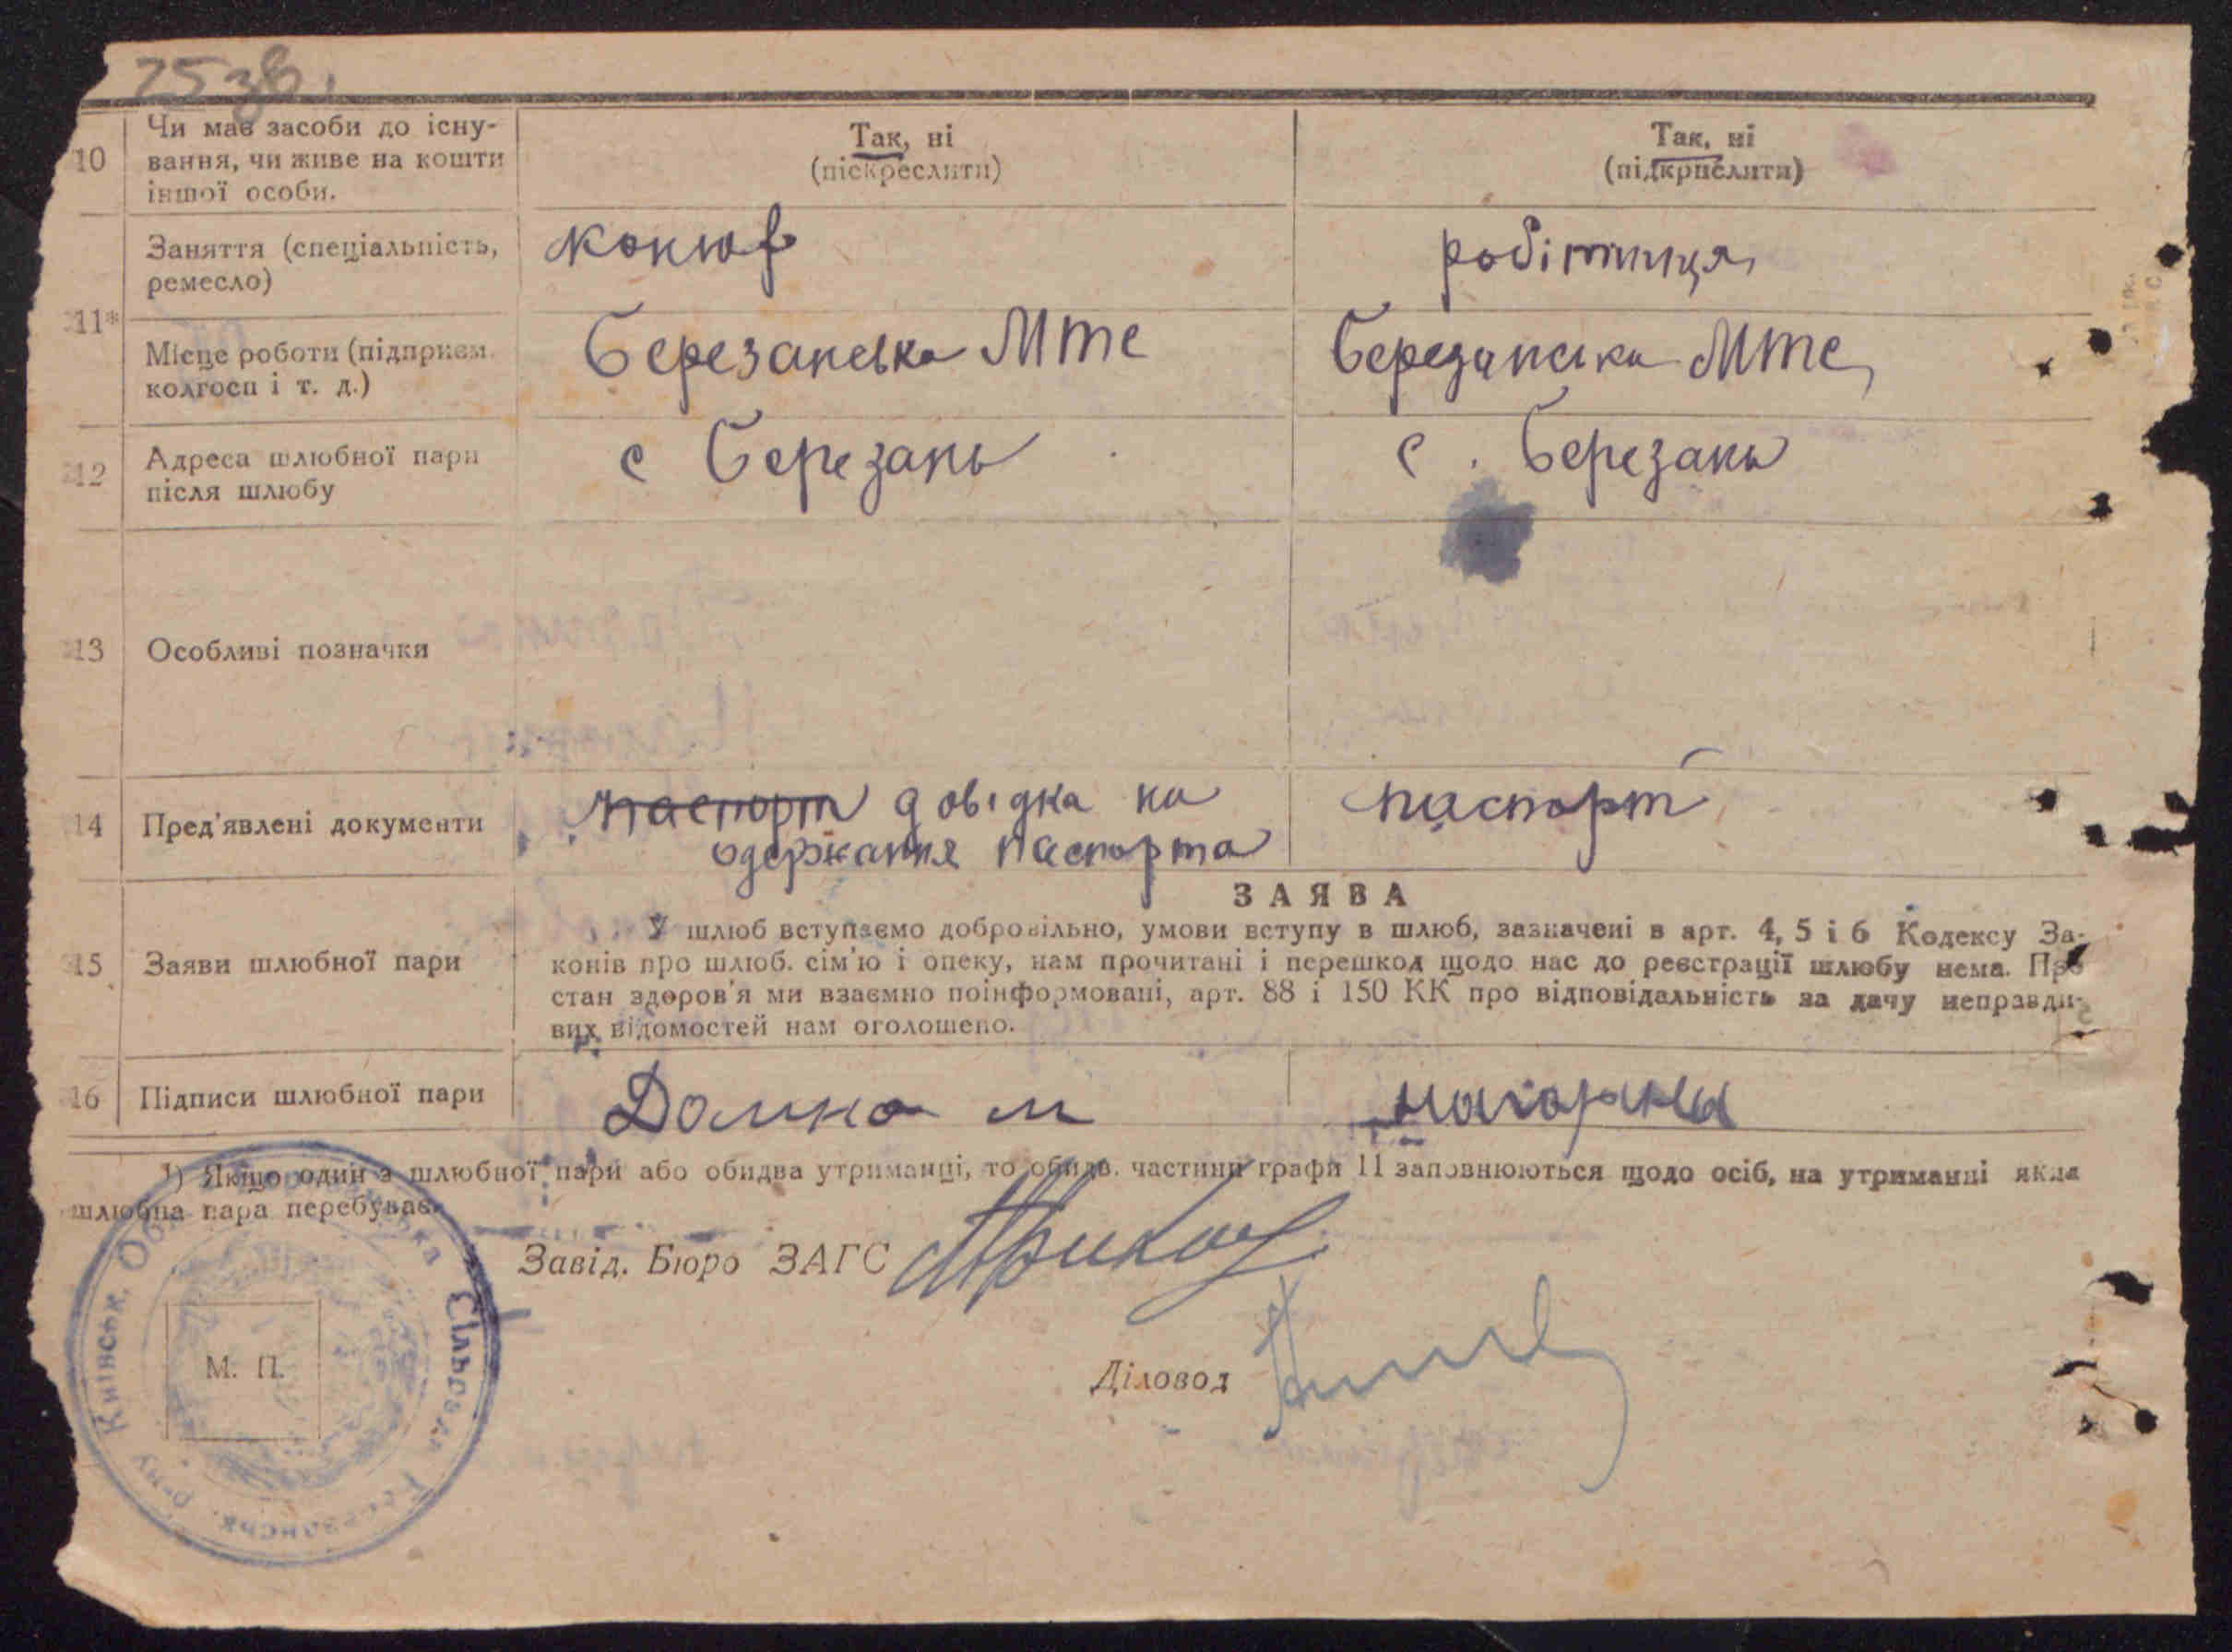 25 зв.
10 Чи має засоби до існу-
вання, чи живе на кошти
іншої особи.
Так, ні
(піскреслити)
Так, ні
(підкрислити)
11*
Заняття (спеціальність,
ремесло)
конюх
робітниця
Місце роботи (підприєм.
колгосп і т. д.)
Березанська Мтс
Березанська Мтс
12 Адреса шлюбної пари
після шлюбу
с Березань
с. Березань
13 Особливі позначки
14 Пред'явлені документи
паспорт довідка на
одержання паспорта
паспорт
15 Заяви шлюбної пари
ЗАЯВА
У шлюб вступаємо добровільно, умови вступу в шлюб, зазначені в арт. 4, 5 і 6 Кодексу За-
конів про шлюб. сім'ю і опеку, нам прочитані і перешкод щодо нас до реєстрації шлюбу нема. Про
стан здоров'я ми взаємно поінформовані, арт. 88 і 150 КК про відповідальність за дачу неправди-
вих відомостей нам оголошено.
16 Підписи шлюбної пари
Домка м
нагорна
¹) Якщо один з шлюбної пари або обидва утриманці, то обидв. частини графи 11 заповнюються щодо осіб, на утриманні яких
шлюбна пара перебуває.
Завід. Бюро ЗАГС
Діловод
М. П.
Київськ. Обл.
Сільська
Березанськ. р-ну